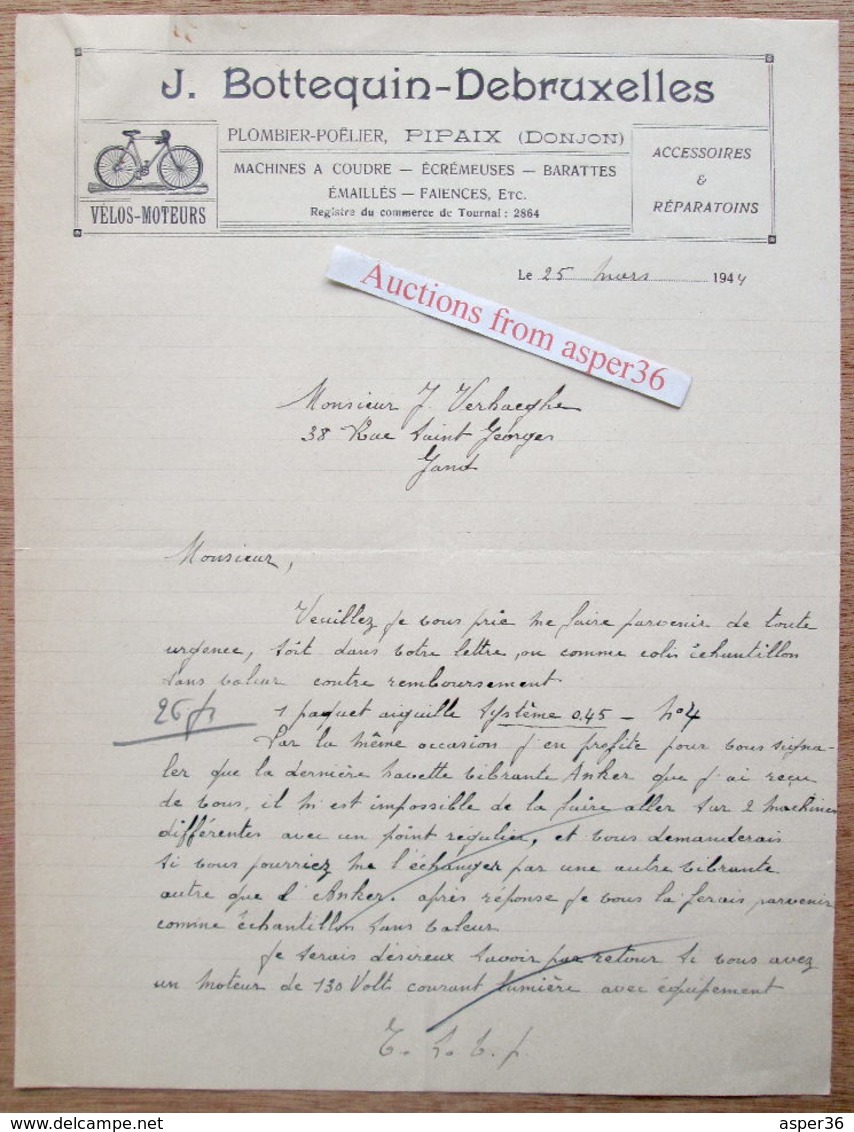 J. Bottequin-Debruxelles
PLOMBIER-POËLIER, PIPAIX (DONJON)
MACHINES A COUDRE — ÉCRÉMEUSES — BARATTES
ÉMAILLÉS — FAIENCES, ETC.
Registre du commerce de Tournai : 2864
VÉLOS-MOTEURS
ACCESSOIRES
&
RÉPARATOINS
Le 25 mars 1944
Auctions from asper36
Monsieur J. Verhaeghe
38 Rue Saint Georges
Gand
Monsieur,
Veuillez je vous prie me faire parvenir de toute
urgence, soit dans votre lettre, ou comme colis échantillon
sans valeur contre remboursement
26 fr 1 paquet aiguille Système 0,45 - No 4
Par la même occasion j'en profite pour vous signa-
ler que la dernière navette vibrante Anker que j'ai reçu
de vous, il m'est impossible de la faire aller sur 2 machines
différentes avec un point regulier, et vous demanderais
si vous pourriez me l'échanger par une autre vibrante
autre que d'Anker. après réponse je vous la ferais parvenir
comme échantillon sans valeur
Je serais désireux savoir par retour si vous avez
un moteur de 130 Volts courant lumière avec équipement
T. S. V. p.
asper36
asper36